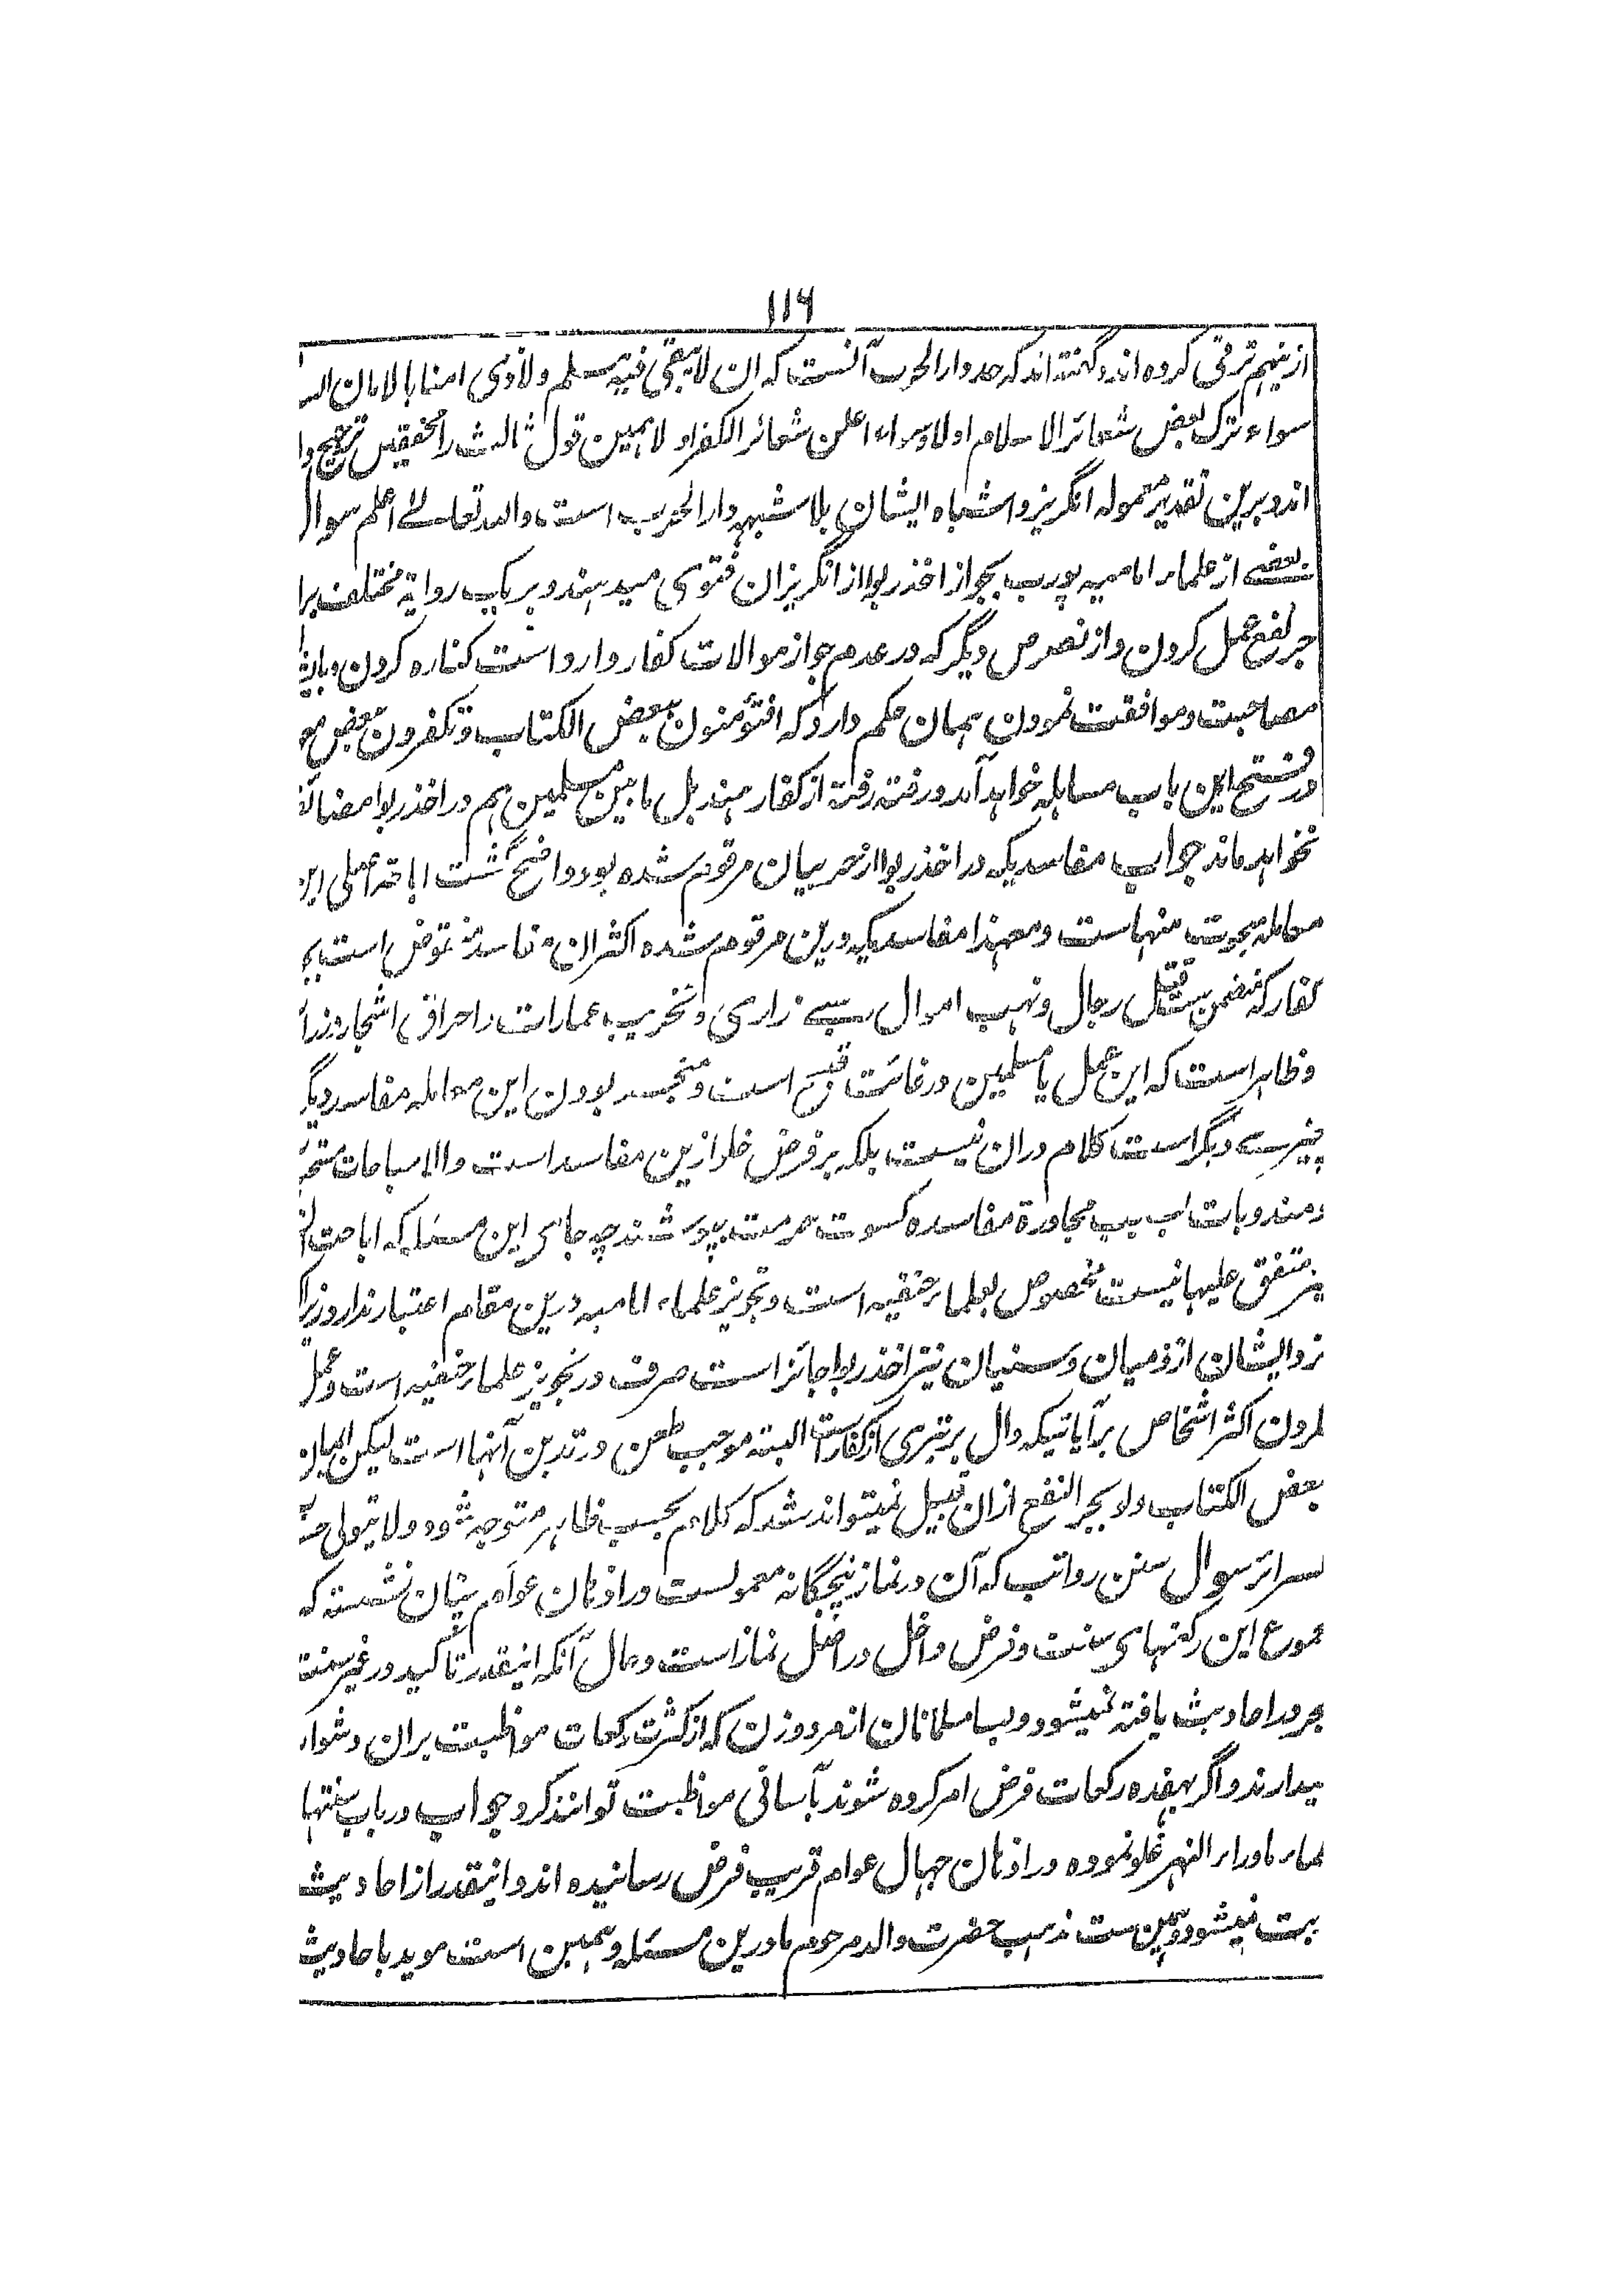 ۱۱۶
ازینهم ترقی کرده اند و گفته اند که حد دار الحرب آنست که ان لا یبقی فیه مسلم ولا ذمی امنا بالامان الا
سواء ترک بعض شعائر الاسلام اولا وسواء اعلن شعائر الکفر او لا همین قول ثالث را محققین ترجیح دا
اند و برین تقدیر معموله انگریز و اشباه ایشان بلا شبهه دار الحرب است والله تعالے اعلم سوال
بعضے از علماء امامیه پورب بجواز اخذ ربوا از انگریزان فتوی میدهند و بر یک روایة مختلف برا
جر نفع عمل کردن و از نصوص دیگر که در عدم جواز موالات کفار وارد است کناره کردن و باینها
مصاحبت و موافقت نمودن همان حکم دارد که افتؤمنون ببعض الکتاب وتکفرون ببعض مع
در فتح این باب مساهله خواهد آمد و رفته رفته از کفار هند بل مابین مسلمین هم در اخذ ربوا مضائقه
نخواهد ماند جواب مفاسدیکه در اخذ ربوا از حربیان مرقوم شده بود واضح گشت اباحة اصلی این
معامله مبحوث منهاست ومعهذا مفاسدیکه درین مرقوم شده اکثر ان فاسد منقوض است به
کفار که متضمن است قتل رجال ونهب اموال سبے زراری و تخریب عمارات و احراق اشجار وزرا
و ظاهر است که این عمل با مسلمین در غائت قبح است و منجر بودن این معامله مفاسد دیگر
چیزے دیگر است کلام دران نیست بلکه بر فرض خلو ازین مفاسد است والا مباحات متحتم
ومندوبات بسبب مجاورة مفاسده کسوت حرمت پوشند چه جای این مسئله که اباحت ان
متفق علیها نیست مخصوص بعلماء حنفیه است و تجویز علماء امامیه درین مقام اعتبار ندارد زیرا که
نزد ایشان از ذمیان و سنیان نیز اخذ ربوا جائز است صرف در تجویز علماء حنفیه است و عمل
کردن اکثر اشخاص بر آیاتیکه دال بر تبری از کفار است البته موجب طعن در تدین آنها است لیکن
بعض الکتاب ولا بجر النفع ازان قبیل نمیتواند شد که کلام بحسب ظاهر متوجه شود ولا یتولی
سرائر سوال سنن رواتب که آن در نماز پنجگانه معمولست در اذهان عوام چنان نشسته که
مجموع این رکعتهای سنت و فرض داخل در اصل نماز است و حال آنکه اینقدر تاکید در غیر سنت
فجر در احادیث یافته نمیشود و بسا مسلمانان از مرد وزن که از کثرت رکعات مواظبت بران دشوار
میدارند و اگر بهفده رکعات فرض امر کرده شوند بآسانی مواظبت توانند کرد جواب در باب سنتها
علماء ماوراء النهر غلو نموده در اذهان جهال عوام قریب فرض رسانیده اند و اینقدر از احادیث
ثابت نمیشود و همین ست مذهب حضرت والد مرحوم ما درین مسئله و همین است موید باحادیث